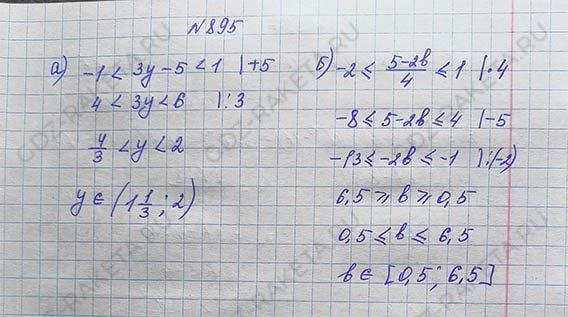 №895
а) -1 < 3y - 5 < 1 | +5
4 < 3y < 6 | : 3
4/3 < y < 2
y ∈ (1 1/3 ; 2)
б) -2 ≤ (5-2b)/4 ≤ 1 | · 4
-8 ≤ 5-2b ≤ 4 | -5
-13 ≤ -2b ≤ -1 | : (-2)
6,5 ≥ b ≥ 0,5
0,5 ≤ b ≤ 6,5
b ∈ [0,5 ; 6,5]
GDZ-RAKETA.RU